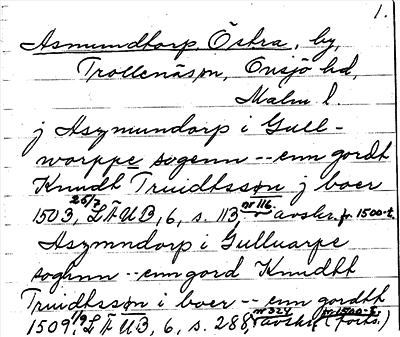 1.
Asmundtorp, Östra, by,
Trollenäs sn, Onsjö hd,
Malm. l.
j Aszmundorp i Gull-
worppe sogenn -- enn gordt
Knudt Truidtssøn j boer
1503 26/7, LÄUB, 6, s. 113 nr 116. avskr. fr. 1500-t.
Aszmndorp i Gulluarpe
sogenn -- enn gord Knudtt
Truidtssøn i boer -- enn gordtt
1509 1/9, LÄUB, 6, s. 288, nr 324 avskr. fr. 1500-t. (forts.)